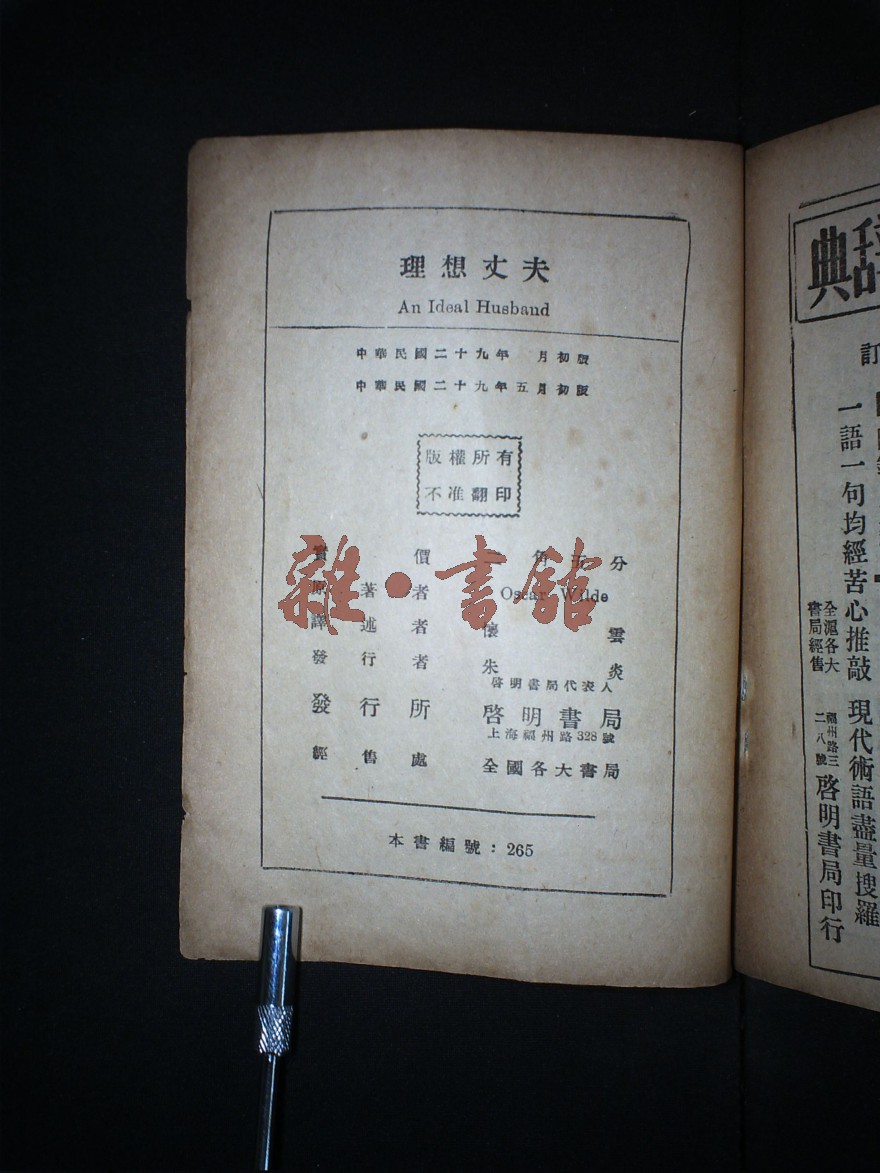 理想丈夫
An Ideal Husband
中華民國二十九年　月初版
中華民國二十九年五月初版
版權所有
不准翻印
實價　角五分
原著者 Oscar Wilde
譯述者 懷雲
發行者 朱炎
啓明書局代表人
發行所 啓明書局
上海福州路328號
經售處 全國各大書局
本書編號：265
雜·書館
辭典
訂
一語一句均經苦心推敲 現代術語盡量搜羅
全滬各大書局經售
福州路三二八號 啓明書局印行